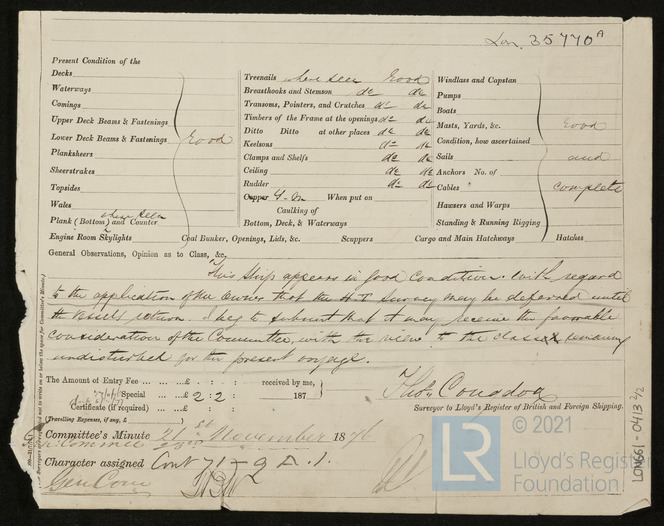 Lon. 35770A
Present Condition of the
Decks
Waterways
Comings
Upper Deck Beams & Fastenings
Lower Deck Beams & Fastenings Good
Planksheers
Sheerstrakes
Topsides
Wales
where seen
Plank (Bottom) and Counter
Engine Room Skylights
Treenails where seen Good
Breasthooks and Stemson do do
Transoms, Pointers, and Crutches do do
Timbers of the Frame at the openings do do
Ditto Ditto at other places do do
Keelsons do do
Clamps and Shelfs do do
Ceiling do do
Rudder do do
Copper Y.M. When put on
Caulking of
Bottom, Deck, & Waterways
Coal Bunker, Openings, Lids, &c.
Scuppers
Windlass and Capstan
Pumps
Boats
Masts, Yards, &c. Good
Condition, how ascertained
Sails and
Anchors No. of
Cables complete
Hawsers and Warps
Standing & Running Rigging
Cargo and Main Hatchways
Hatches
General Observations, Opinion as to Class, &c.
This Ship appears in good condition. With regard
to the application of the Owner that the H.T. Survey may be deferred until
the vessels return I beg to submit that it may receive the favorable
consideration of the Committee, with the view to the class remaining
undisturbed for the present voyage.
The Amount of Entry Fee ... ... £ : : received by me,
Special ... ... £ 2 : 2 : 187
Certificate (if required) ... £ : :
(Travelling Expenses, if any, £ )
Surveyor to Lloyd's Register of British and Foreign Shipping.
Committee's Minute 21st November 1876
Character assigned Cont 71 - 9 A.1.
Gen Com
LON661-0413 2/2
© 2021
LR
Lloyd's Register
Foundation